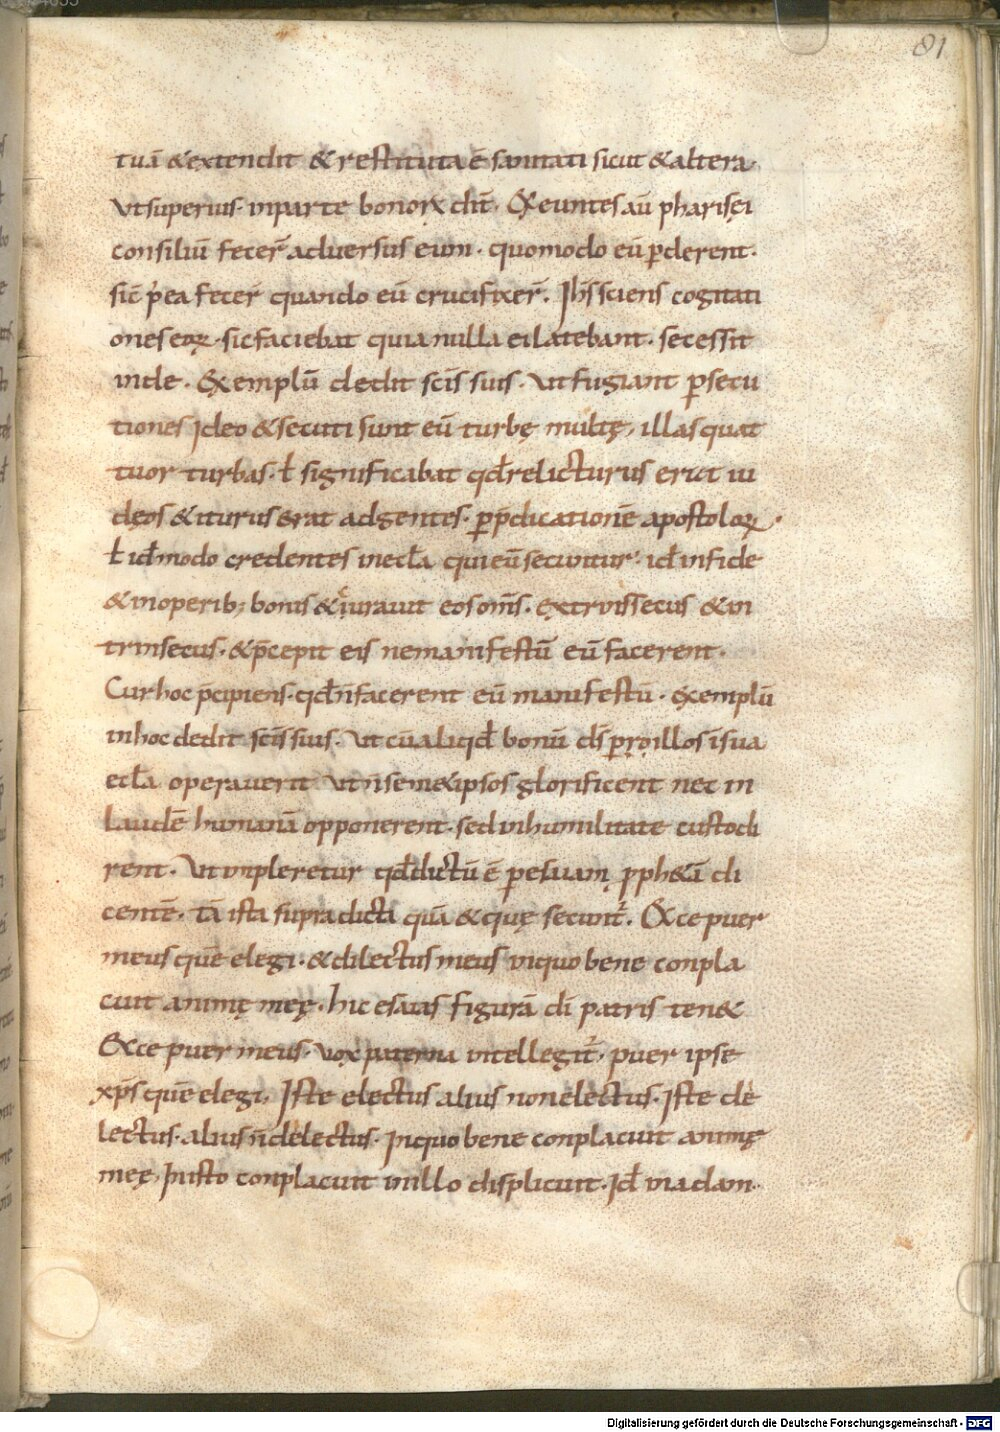 81
tuā &extendit & restituta ē sanitati sicut & altera.
Vt superius. inparte bonoꝝ dix̄. Exeuntes aū pharisęi
consiliū fecer̄ aduersus eum. quomodo eū ꝑderent.
sic̄ p̄ea fecer̄ quando eū crucifixer̄. Ih̄s sciens cogitati
ones eoꝝ. sic faciebat quia nulla ei latebant. secessit
inde. Exemplū dedit sc̄is suis. Vt fugiant ꝑsecu
tiones Ideo & secuti sunt eū turbę multę, illas quat
tuor turbas. ł significabat qđ relicturus erat iu
dęos & iturus erat ad gentes. ꝑ p̄dicationē apostoloꝝ.
ł id modo credentes in eccła qui eū secuntur. id in fide
& in operib; bonis & curauit eos om̄s. extrinsecus & in
trinsecus. & p̄cepit eis ne manifestū eū facerent.
Cur hoc p̄cipiens. qđ n̄ facerent eū manifestū. exemplū
in hoc dedit sc̄is suis. Vt cū aliqđ bonū d̄s ꝑ illos ī sua
eccła operauerit Vt n̄ semetipsos glorificent nec in
laudē humanā opponerent. sed in humilitate custodi
rent. Vt impleretur qđ dictū ē ꝑ esaiam ꝓph&ā di
centē. tā ista supradicta quā & quę secunt᷑. Ecce puer
meus quē elegi. & dilectus meus in quo bene conpla
cuit animę meę. hic esaias figurā dī patris ten&
Ecce puer meus. vox paterna intellegit᷑, puer ipse
xp̄s quē elegi, Iste electus alius non electus. Iste de
lectus. alius n̄ delectus. In quo bene conplacuit animę
meę, In isto conplacuit in illo displicuit. Id in adam.
Digitalisierung gefördert durch die Deutsche Forschungsgemeinschaft - DFG